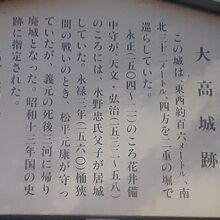 大高城跡
この城は、東西約百六メートル、南
北三十二メートル、四方を二重の堀で
巡らしていた。
永正(一五〇四-二一)のころ花井備
中守が、天文・弘治(一五三二-五八)
のころには、水野忠氏父子が居城
していた。永禄三年(一五六〇)桶狭
間の戦いのとき、松平元康が守っ
ていたが、義元の死後三河に帰り
廃城となった。昭和十三年国の史
跡に指定された。